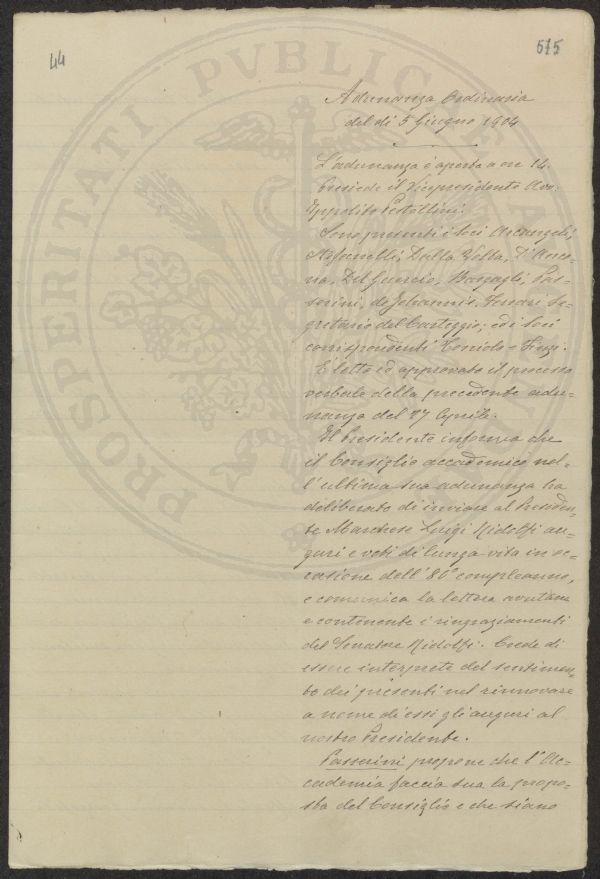 44
575
PROSPERITATI PVBLICAE AVGENDAE
Adunanza Ordinaria
del dì 5 Giugno 1904
L'adunanza è aperta a ore 14.
Presiede il Vicepresidente Avv.
Ippolito Pestellini.
Sono presenti i soci Arcangeli,
Stefanelli, Dalla Volta, D'Anco-
na, Del Guercio, Bargagli, Pas-
serini, de Johannis, Ferrari Se-
gretario del Carteggio; ed i soci
corrispondenti Toniolo e Finzi.
È letto ed approvato il processo
verbale della precedente adu-
nanza del 27 Aprile.
Il Presidente informa che
il Consiglio accademico nel-
l'ultima sua adunanza ha
deliberato di inviare al Presiden-
te Marchese Luigi Ridolfi au-
guri e voti di lunga vita in oc-
casione dell'80° compleanno,
e comunica la lettera avutane
e contenente i ringraziamenti
del Senatore Ridolfi. Crede di
essere interprete del sentimen-
to dei presenti nel rinnovare
a nome di essi gli auguri al
nostro Presidente.
Passerini propone che l'Ac-
cademia faccia sua la propo-
sta del Consiglio e che siano